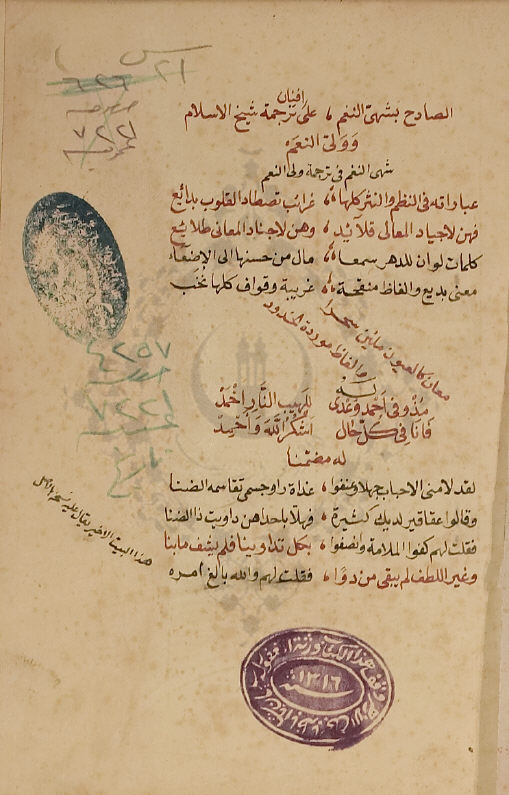 ٢١ س
٦٢٦
٧٢٢
الصادح بشهى النغم ، على ترجمة شيخ الاسلام
افنان
وولى النعم
شهى النغم فى ترجمة ولى النعم
عباراته فى النظم والنثر كلها ، غرائب تصطاد القلوب بدائع
فهن لاجياد المعالى قلائد ، وهن لاجناد المعانى طلائع
كلمات لو ان للدهر سمعا ، مال من حسنها الى الاصغاء
معنى بديع والفاظ منقحة ، غريبة وقواف كلها نخب
معان كالعيون ملئن سحرا
والفاظ موردة الخدود
٢٥٧
٧٢٢
تاريخ
له
مذ وفى احمد وعدى للهيب النار اخمد
فانا فى كل حال اشكر الله واحمد
له مضمنا
لقد لامنى الاحباب جهلا وعنفوا ، غداة راوجسمى تقاسمه الضنا
وقالوا عقاقير لديك كثيرة ، فهلا باحداهن داويت ذا الضنا
فقلت لهم كفوا الملامة وانصفوا ، بكل تداوينا فلم يشف ما بنا
وغير اللطف لم يبقى من دوا ، فقلت لهم والله بالغ امره
هذا البيت الاخير يقال عليه
وقف هذا الكتاب
سنة ١٣١٦